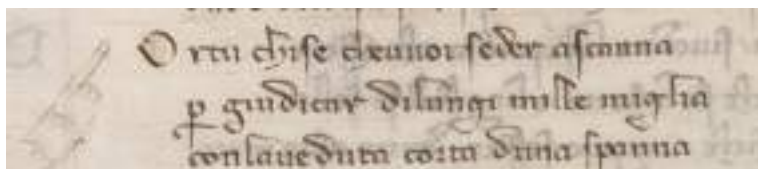 O rtu chise che uuoi seder ascranna
ꝑ giudicar dilungi mille miglia
conlaueduta corta duna spanna